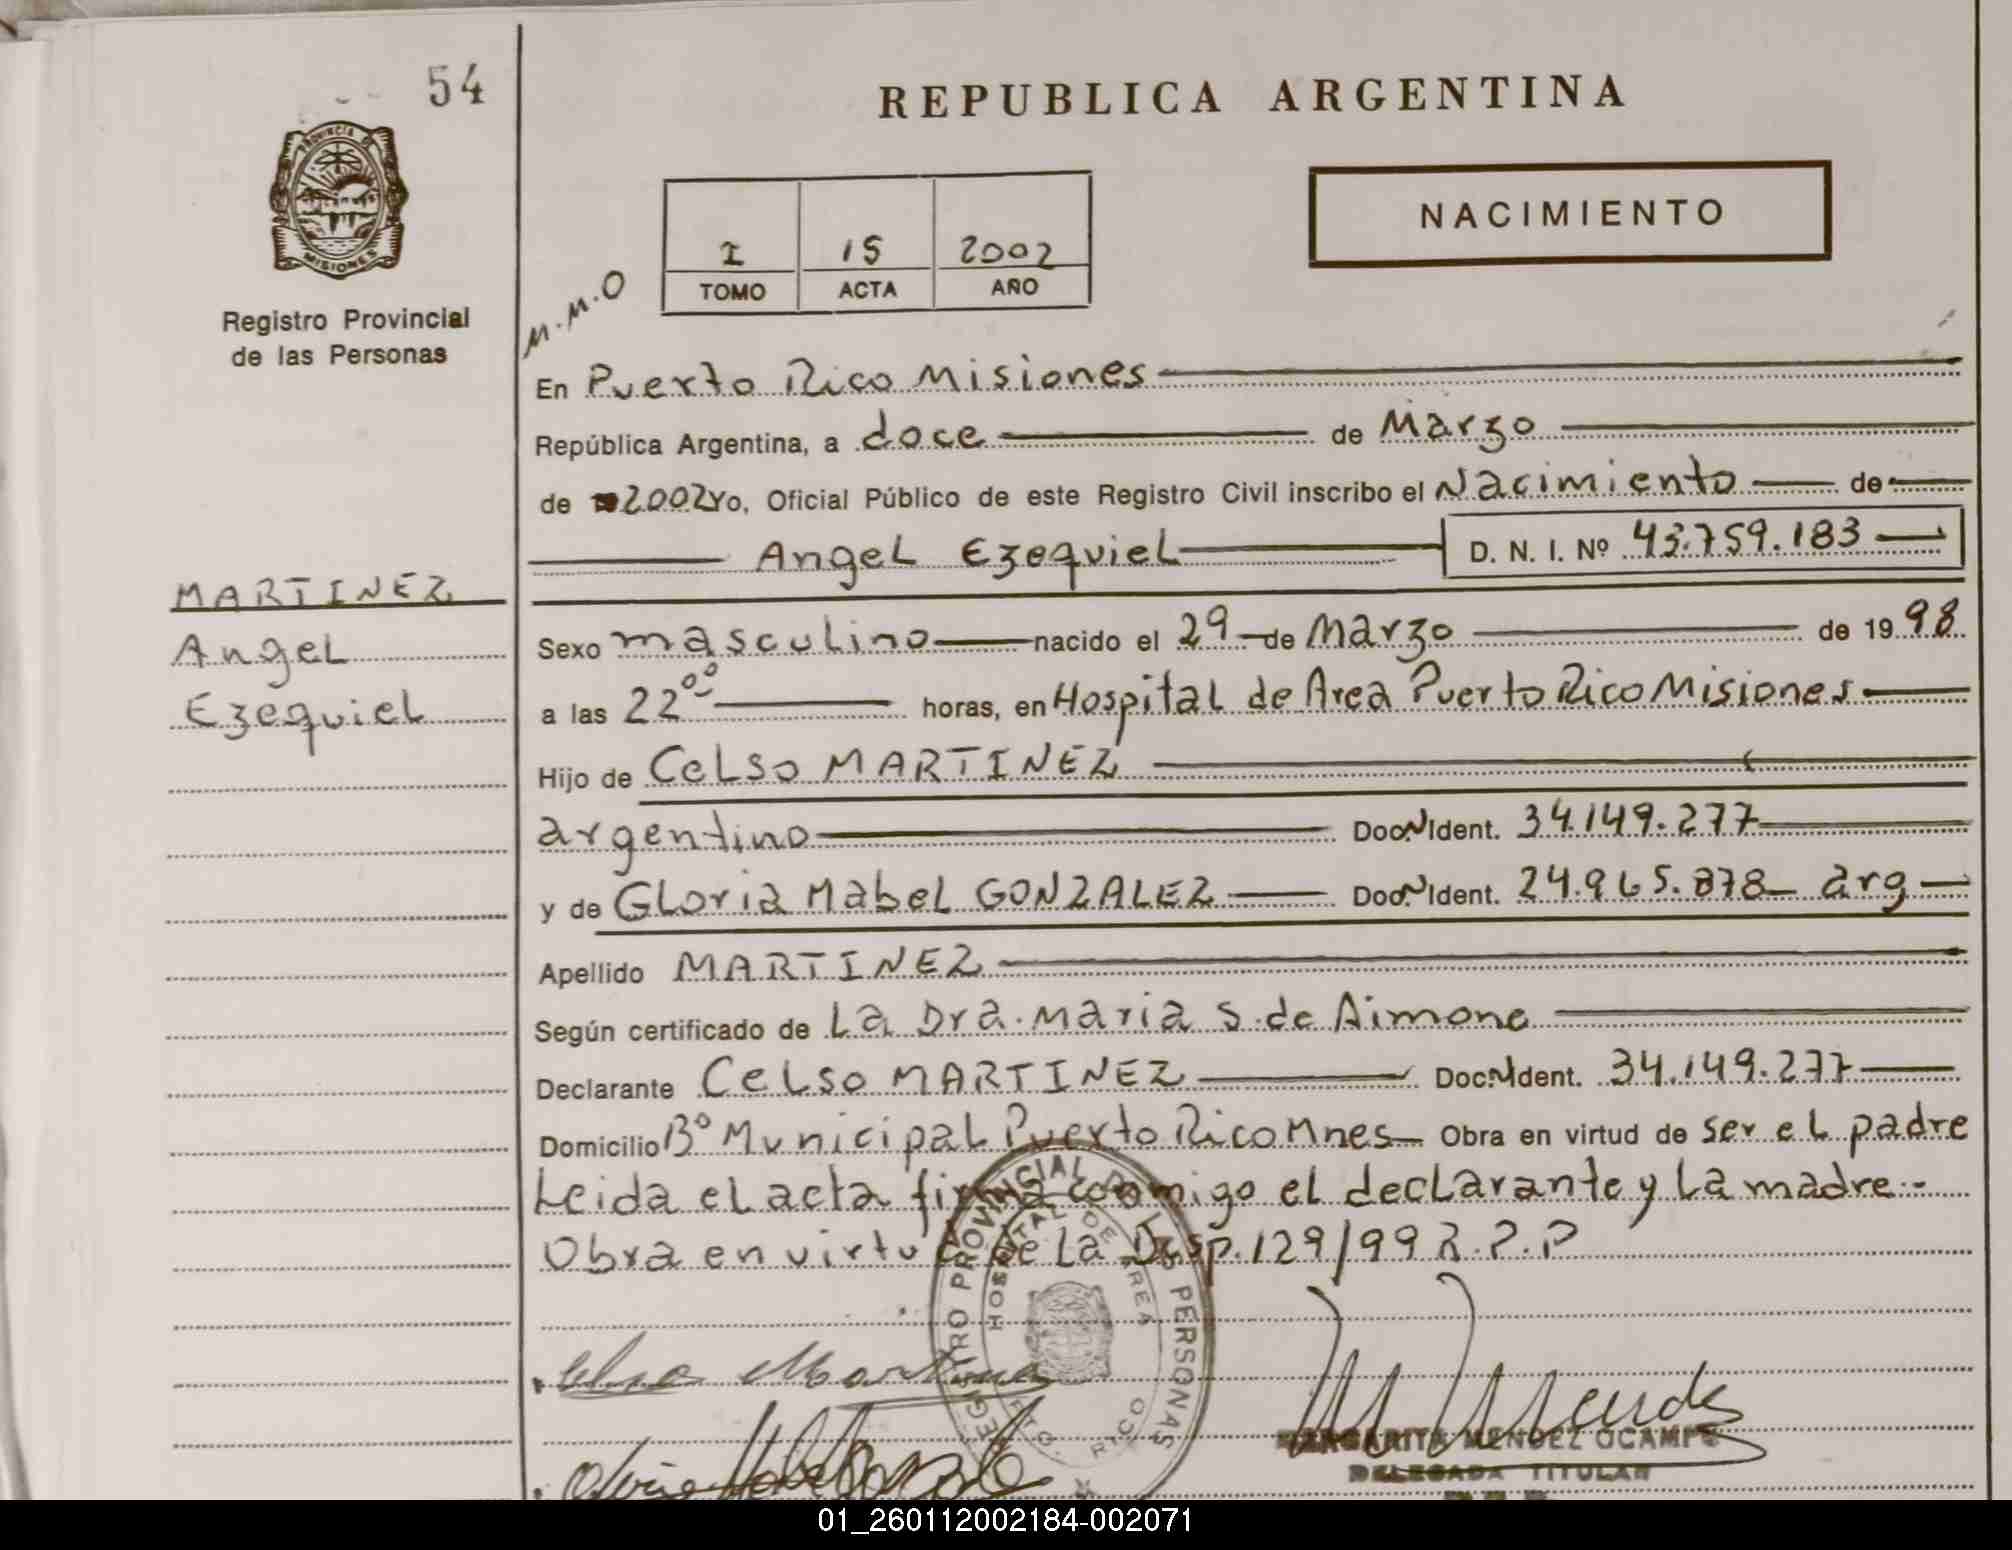 54
REPUBLICA ARGENTINA
PROVINCIA DE
MISIONES
Registro Provincial
de las Personas
NACIMIENTO
I 15 2002
TOMO ACTA AÑO
M.M.O
En Puerto Rico Misiones
República Argentina, a doce de Marzo
de 2002 Yo, Oficial Público de este Registro Civil inscribo el Nacimiento de
Angel Ezequiel D. N. I. Nº 43.759.183
MARTINEZ
Angel
Ezequiel
Sexo masculino nacido el 29 de Marzo de 1998
a las 22ºº horas, en Hospital de Area Puerto Rico Misiones
Hijo de Celso MARTINEZ
argentino Doc. N Ident. 34.149.277
y de Gloria Mabel GONZALEZ Doc. N Ident. 24.965.878 arg
Apellido MARTINEZ
Según certificado de La Dra. Maria S. de Aimone
Declarante Celso MARTINEZ Doc. N Ident. 34.149.277
Domicilio Bº Municipal Puerto Rico Mnes Obra en virtud de ser el padre
Leida el acta firma conmigo el declarante y la madre.-
Obra en virtud de la Disp. 129/99 R.P.P
REGISTRO PROVINCIAL DE LAS PERSONAS
HOSPITAL DE AREA
PTO. RICO
Celso Martinez
MARGARITA MENDEZ OCAMPO
DELEGADA TITULAR
01_260112002184-002071